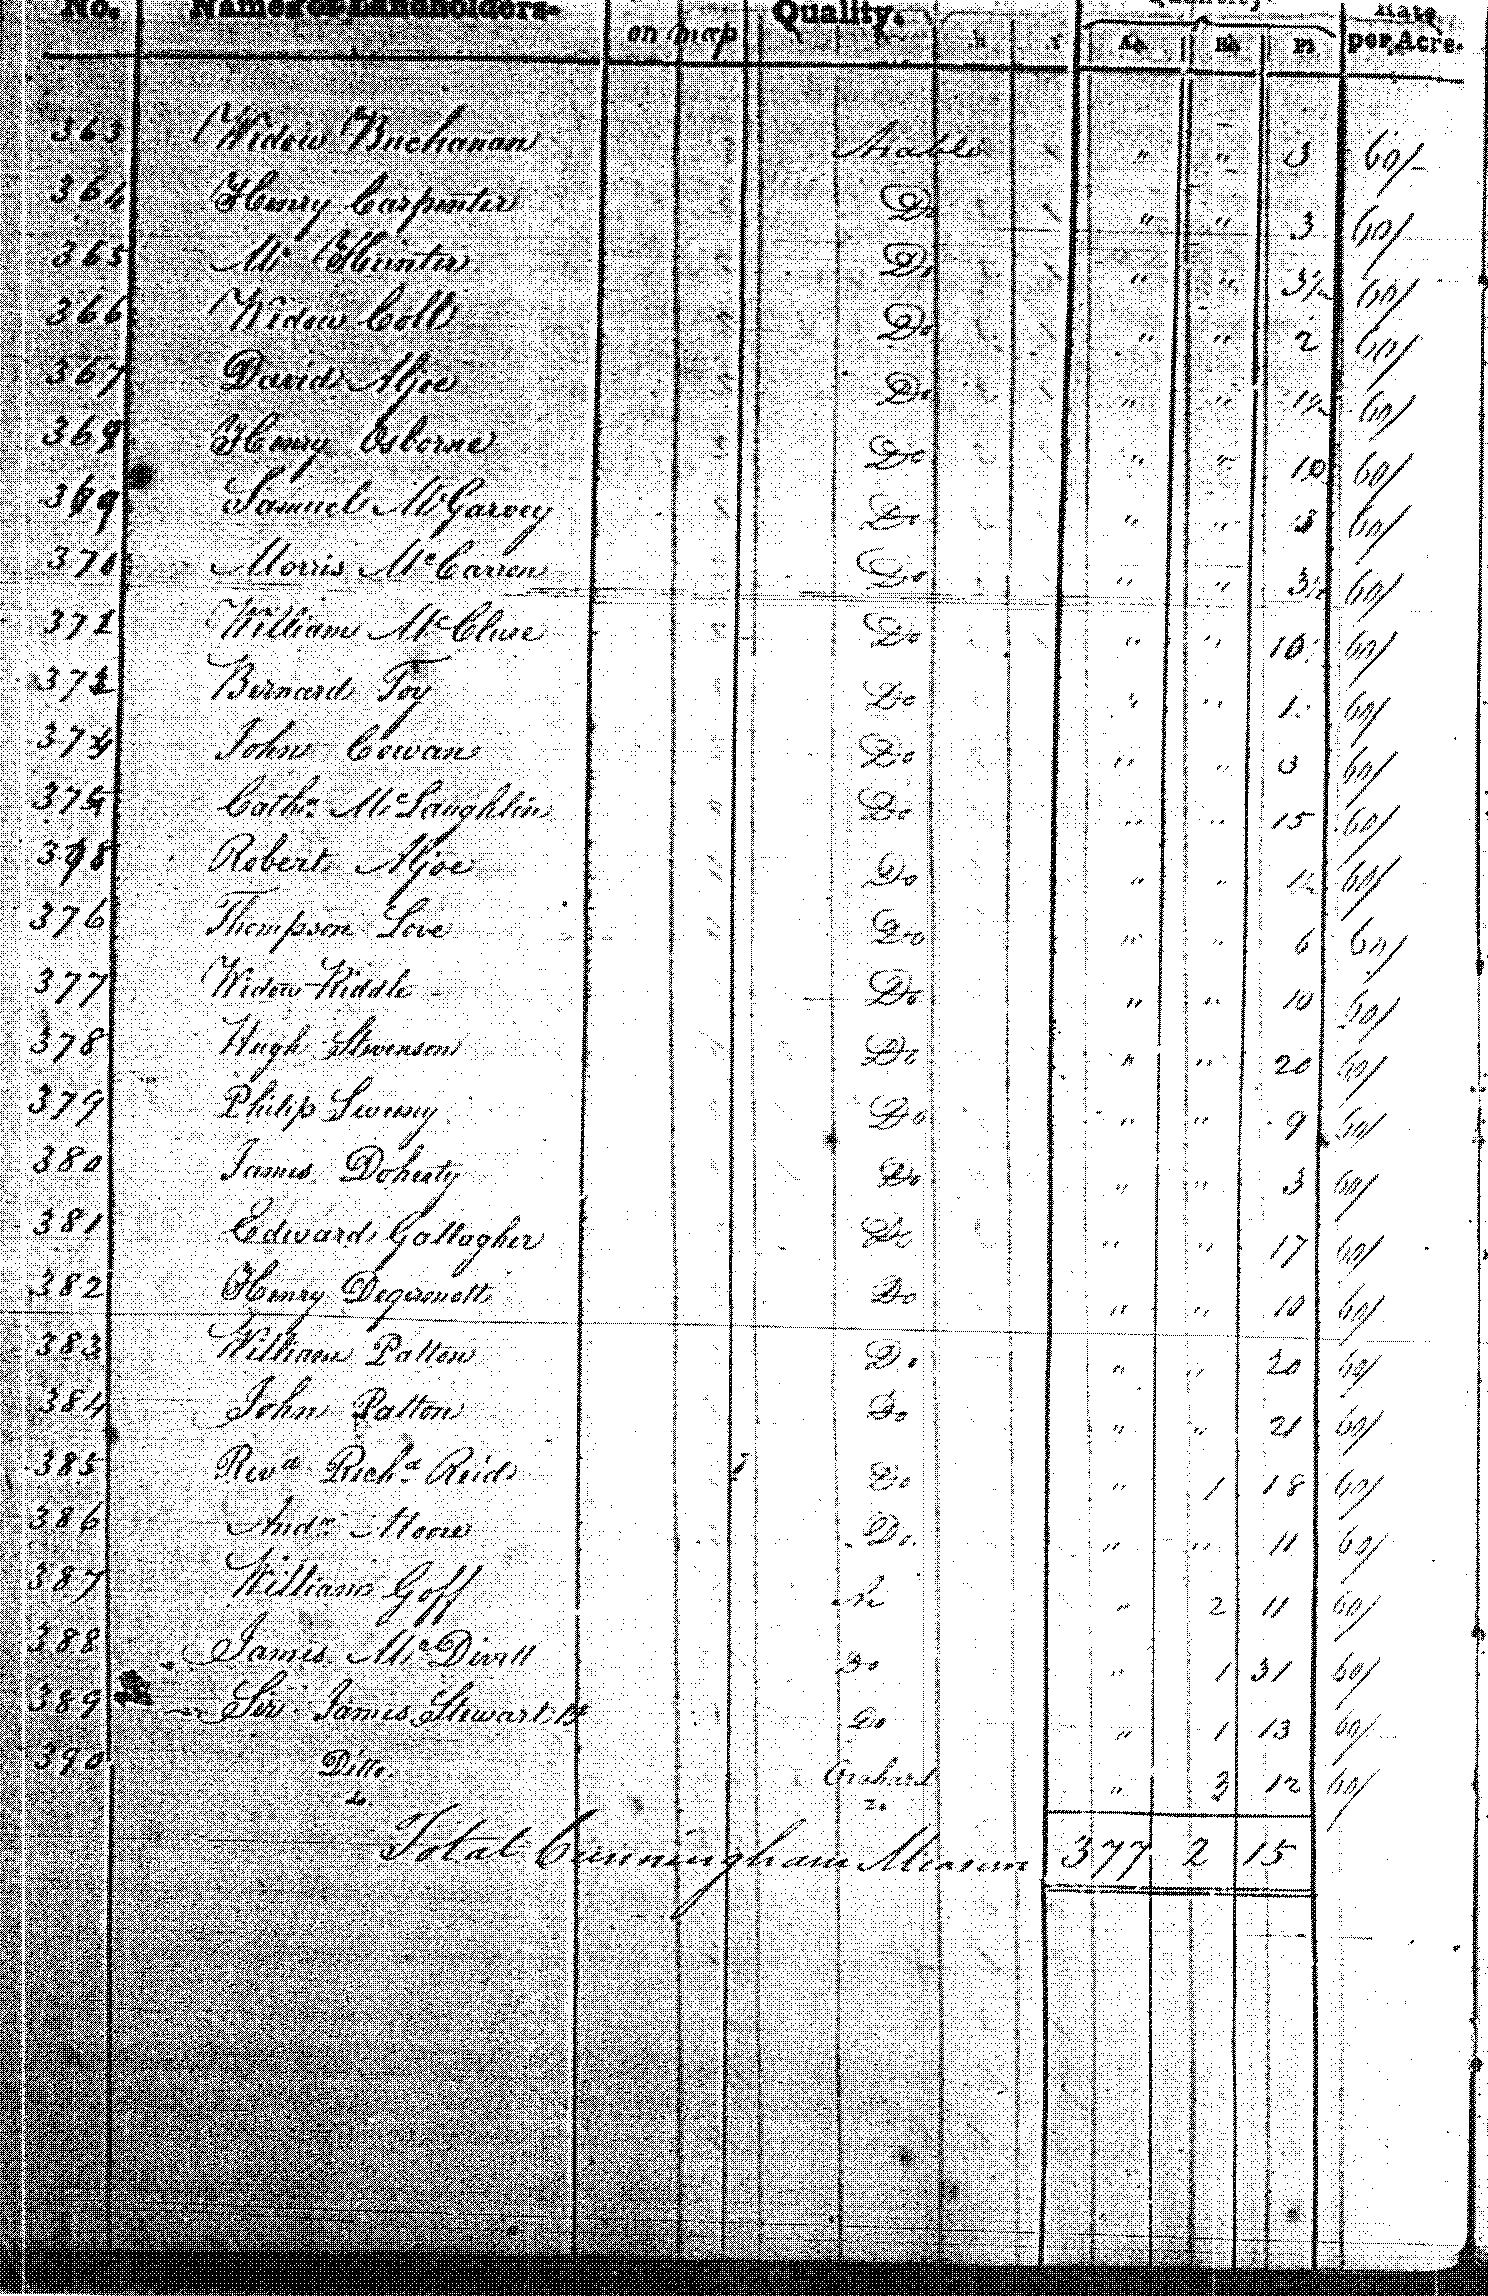 No. Names of Landholders. on map Quality. A. R. P. Rate per Acre.
363 Widow Buchanan Arable " " 3 60/-
364 Henry Carpenter Do " " 3 60/
365 Mr Hunter Do " " 3½ 60/
366 Widow Colt Do " " 2 60/
367 David Aljoe Do " " 1½ 60/
368 Henry Osborne Do " " 10 60/
369 Samuel McGarvey Do " " 3 60/
370 Morris McCarron Do " " 3½ 60/
371 William McClure Do " " 10 60/
372 Bernard Toy Do " " 1 60/
373 John Cowan Do " " 3 60/
374 Cathe McLaughlin Do " " 15 60/
375 Robert Aljoe Do " " 1½ 60/
376 Thompson Love Do " " 6 60/
377 Widow Kiddle Do " " 10 60/
378 Hugh Stevenson Do " " 20 60/
379 Philip Sweeny Do " " 9 60/
380 James Doherty Do " " 3 60/
381 Edward Gallagher Do " " 17 60/
382 Henry Do " " 10 60/
383 William Patton Do " " 20 60/
384 John Patton Do " " 21 60/
385 Revd Richd Reid Do " 1 18 60/
386 Andw Moore Do. " " 11 60/
387 William Goff Do " 2 11 60/
388 James McDivett Do " 1 31 60/
389 Sir James Stewart Bt Do " 1 13 60/
390 Ditto " 3 12 60/
Total Cunningham Measure 377 2 15